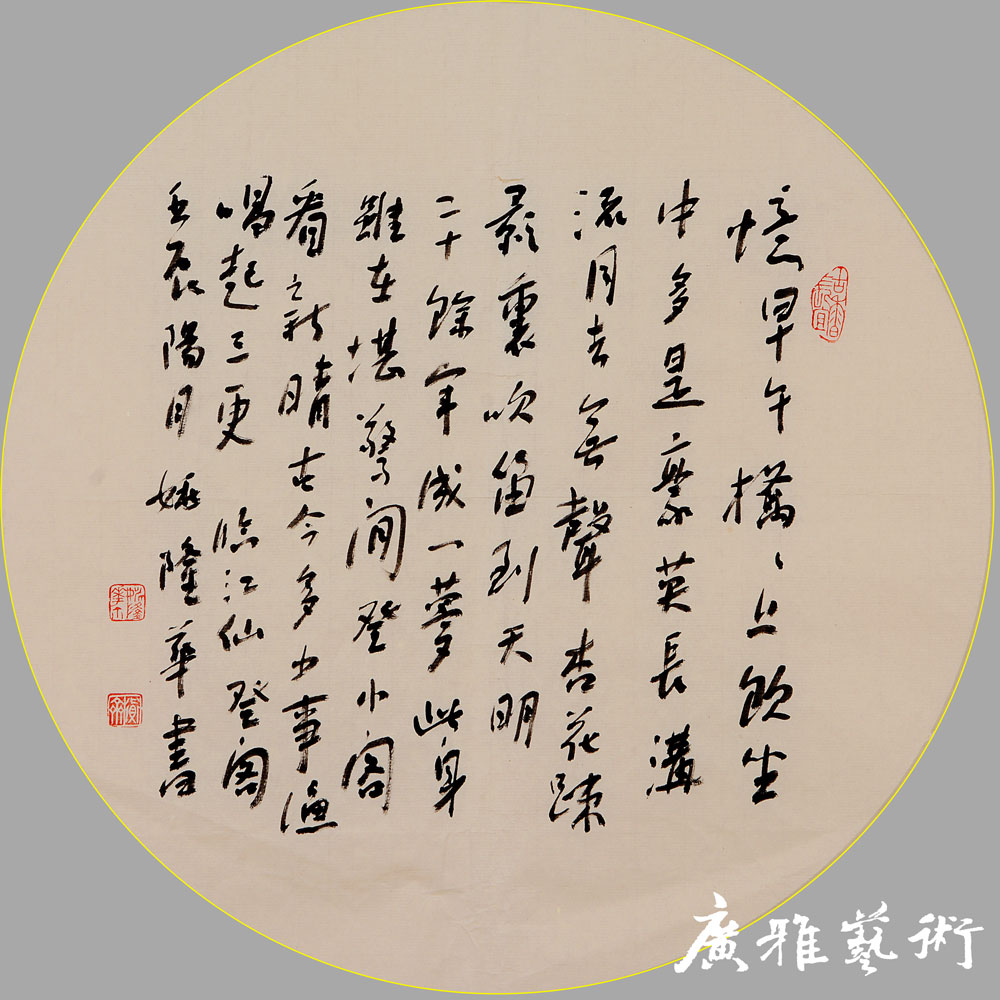 憶早午橋〻上飲坐
中多是豪英長溝
流月去無聲杏花疎
影裏吹笛到天明
二十餘年成一夢此身
雖在堪驚閒登小閣
看新晴古今多少事漁
唱起三更 臨江仙 登閣
壬辰陽月 姚隆華書
廣雅藝術